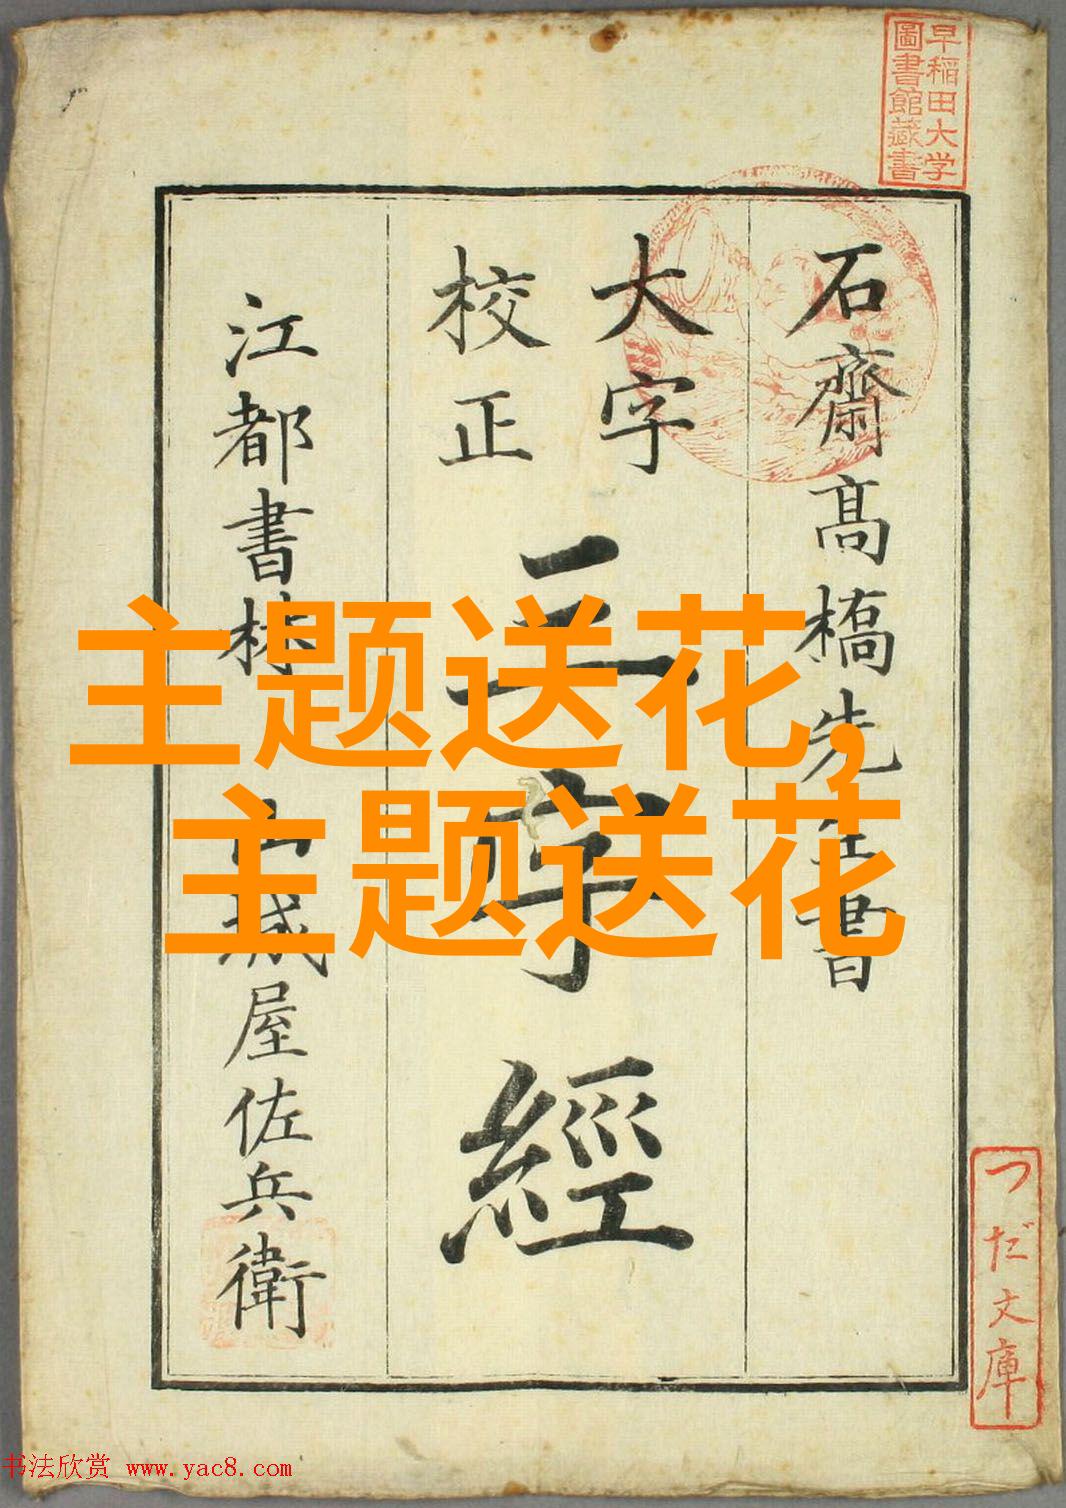 早稲田大学
圖書館藏書
石齋髙橋先生書
大字
校正
三字經
江都書林 山城屋佐兵衛
主题送花,
主题送花
つだ文庫
书法欣赏 www.yac8.com